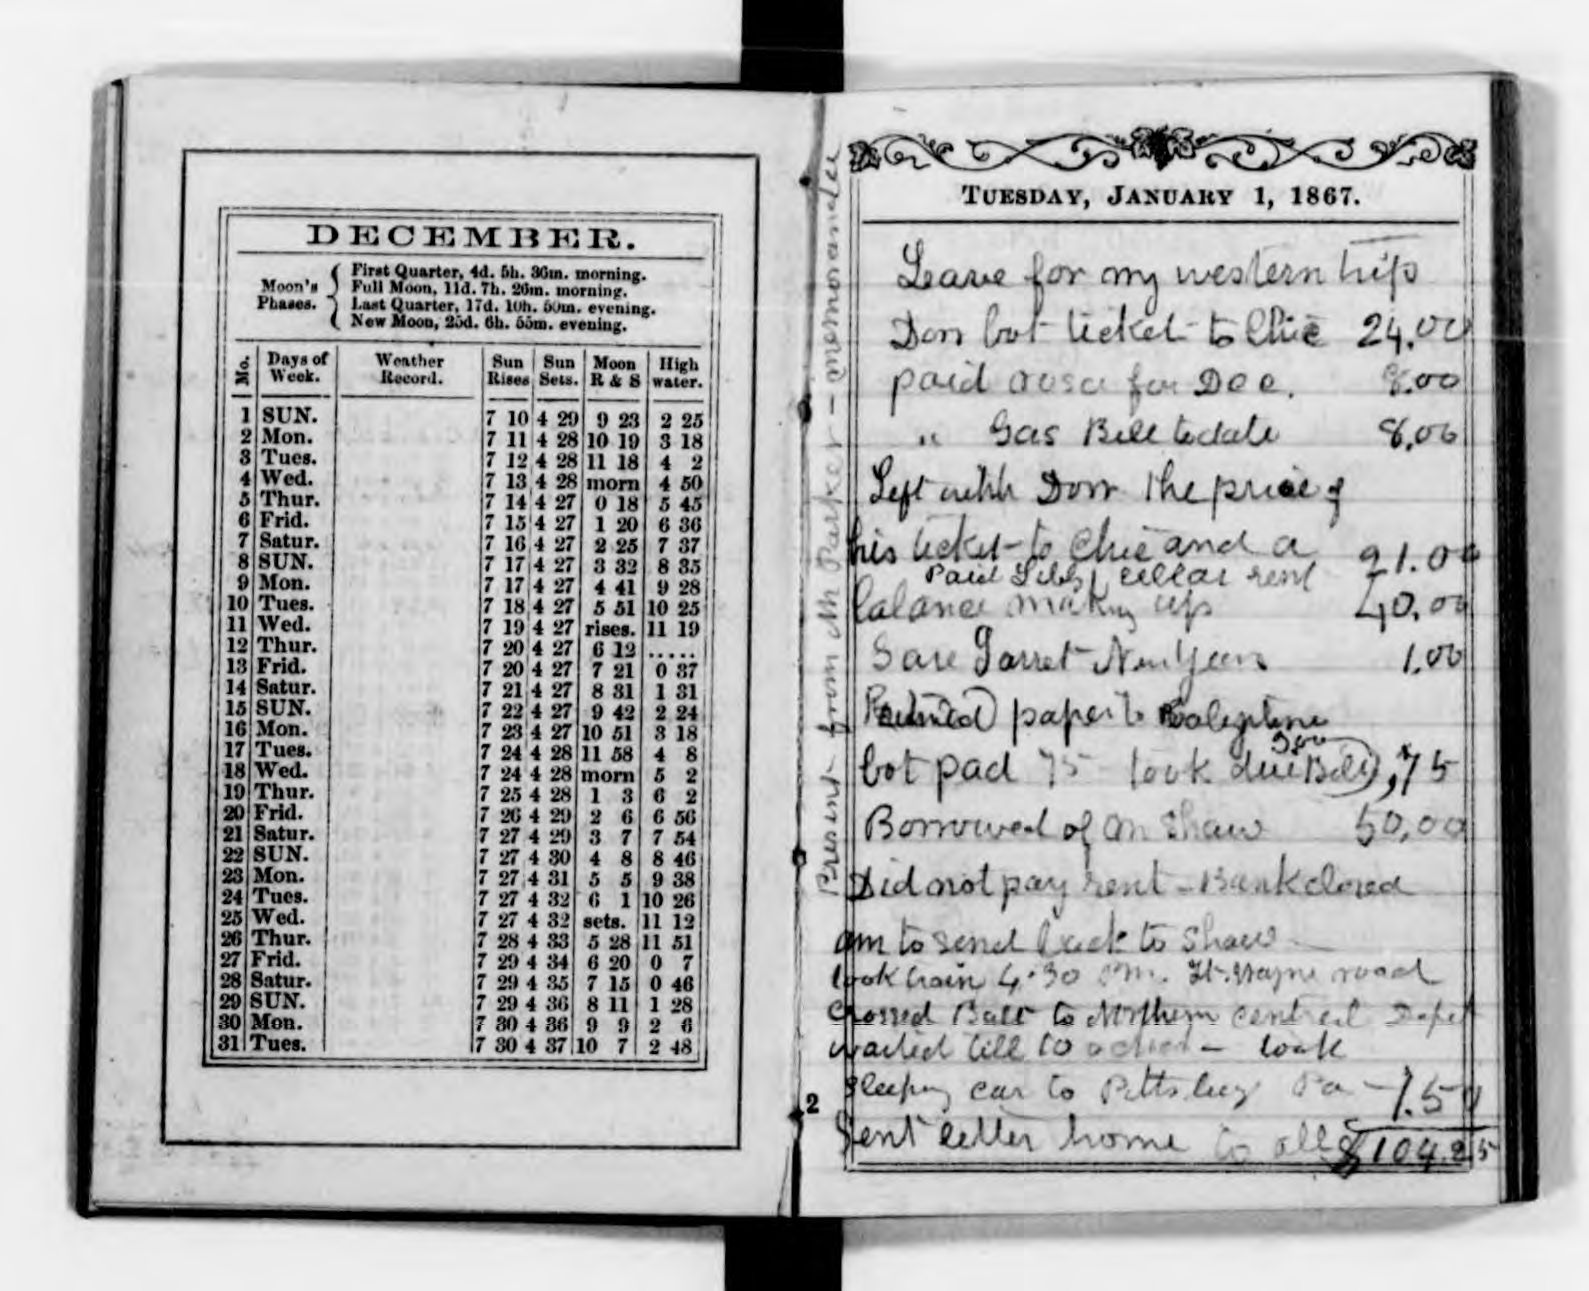 DECEMBER.
Moon's Phases.
First Quarter, 4d. 5h. 36m. morning.
Full Moon, 11d. 7h. 26m. morning.
Last Quarter, 17d. 10h. 50m. evening.
New Moon, 25d. 6h. 55m. evening.
No. Days of Week. Weather Record. Sun Rises Sun Sets. Moon R & S High water.
1 SUN. 7 10 4 29 9 23 2 25
2 Mon. 7 11 4 28 10 19 3 18
3 Tues. 7 12 4 28 11 18 4 2
4 Wed. 7 13 4 28 morn 4 50
5 Thur. 7 14 4 27 0 18 5 45
6 Frid. 7 15 4 27 1 20 6 36
7 Satur. 7 16 4 27 2 25 7 37
8 SUN. 7 17 4 27 3 32 8 35
9 Mon. 7 17 4 27 4 41 9 28
10 Tues. 7 18 4 27 5 51 10 25
11 Wed. 7 19 4 27 rises. 11 19
12 Thur. 7 20 4 27 6 12 .....
13 Frid. 7 20 4 27 7 21 0 37
14 Satur. 7 21 4 27 8 31 1 31
15 SUN. 7 22 4 27 9 42 2 24
16 Mon. 7 23 4 27 10 51 3 18
17 Tues. 7 24 4 28 11 58 4 8
18 Wed. 7 24 4 28 morn 5 2
19 Thur. 7 25 4 28 1 3 6 2
20 Frid. 7 26 4 29 2 6 6 56
21 Satur. 7 27 4 29 3 7 7 54
22 SUN. 7 27 4 30 4 8 8 46
23 Mon. 7 27 4 31 5 5 9 38
24 Tues. 7 27 4 32 6 1 10 26
25 Wed. 7 27 4 32 sets. 11 12
26 Thur. 7 28 4 33 5 28 11 51
27 Frid. 7 29 4 34 6 20 0 7
28 Satur. 7 29 4 35 7 15 0 46
29 SUN. 7 29 4 36 8 11 1 28
30 Mon. 7 30 4 36 9 9 2 6
31 Tues. 7 30 4 37 10 7 2 48
Present from Mr Parker - memorander
TUESDAY, JANUARY 1, 1867.
Leave for my western trip
Dorr bot ticket to Chic 24.00
paid rosa for Dec. 8.00
" Gas Bill to date 8.00
Left with Dorr the price of
his ticket to Chic and a 21.00
Paid cellar rent
balance making up 40.00
Gave Garret New Years 1.00
paper to
bot pad 75 took due Bill ,75
Borrowed of Mr Shaw 50,00
Did not pay rent - Bank closed
am to send back to Shaw
took train 4.30 P.M. Ft. Wayne road
Crossed Balt to Northern central Depot
waited till 10 - took
sleeping car to Pittsburg Pa - 1.50
Sent letter home to all $104.25
2